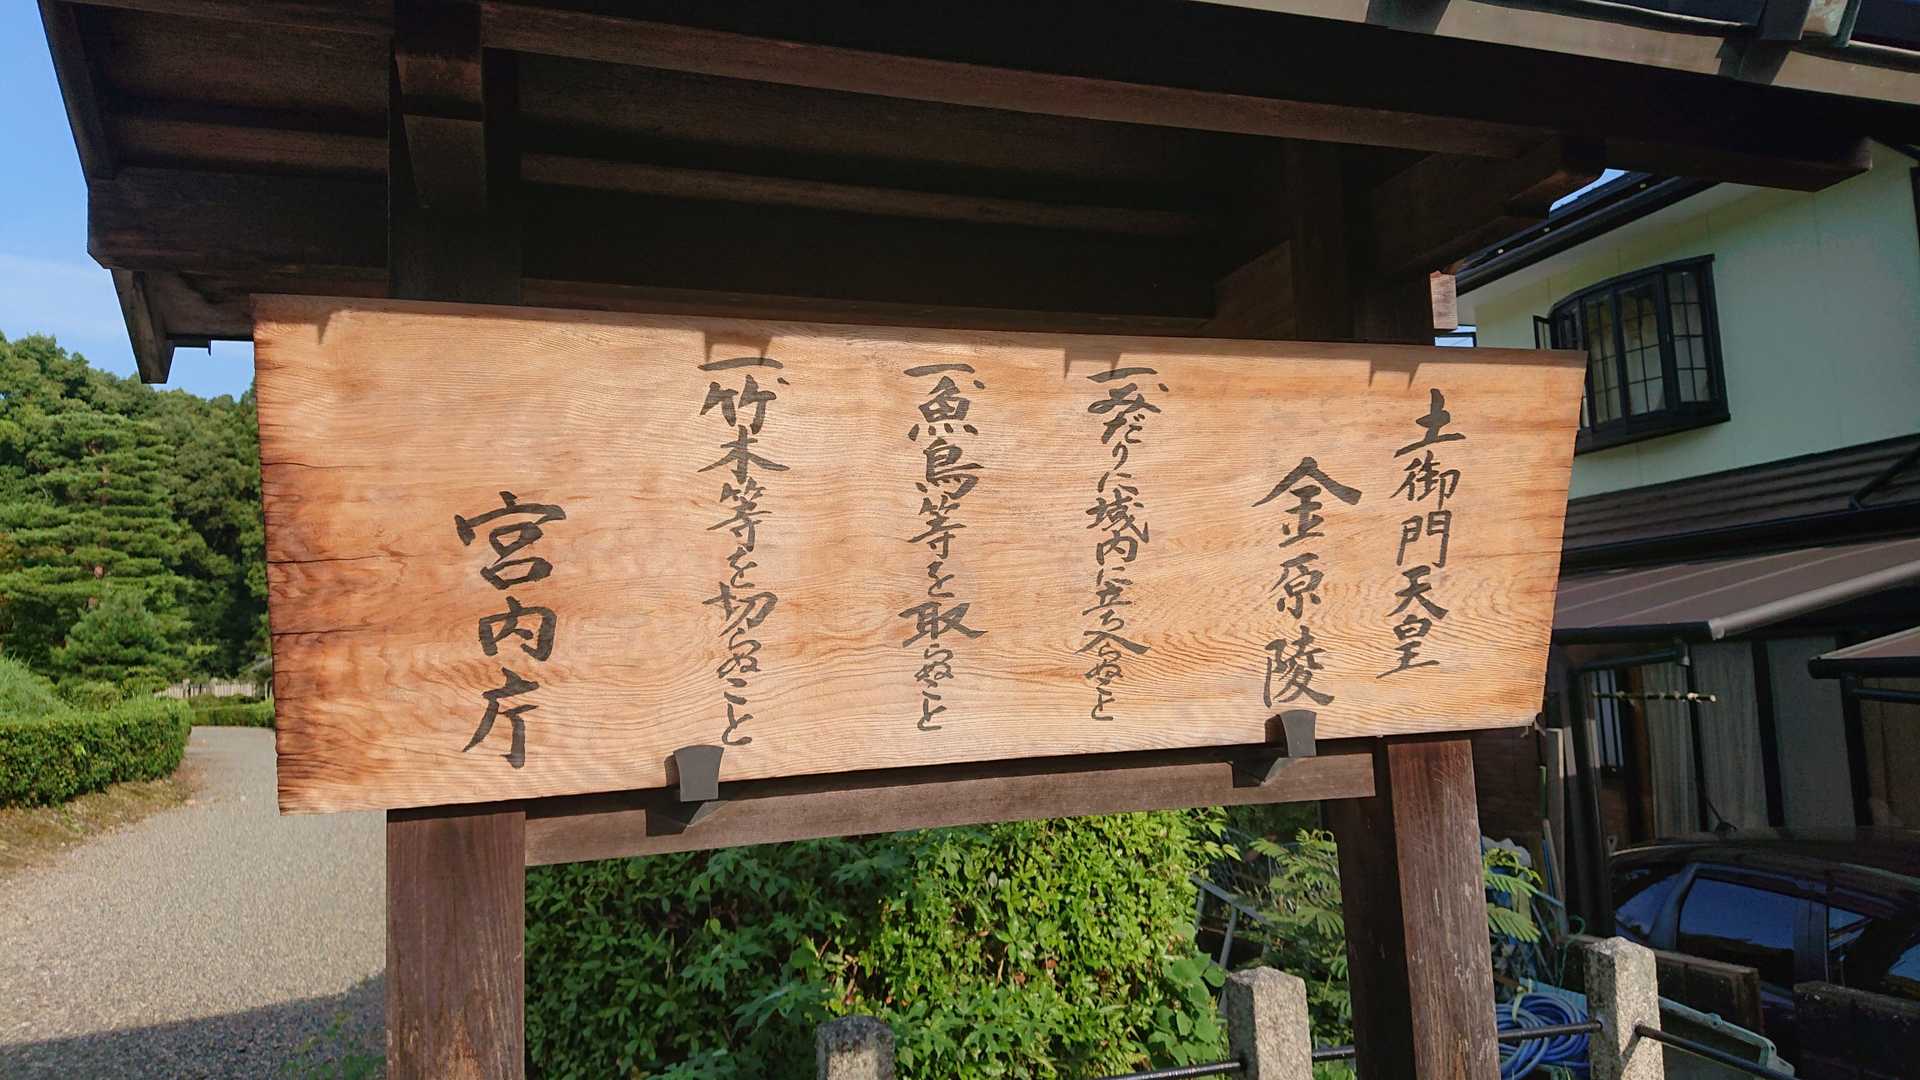 土御門天皇
金原陵
一みだりに域内に立ち入らぬこと
一魚鳥等を取らぬこと
一竹木等を切らぬこと
宮内庁